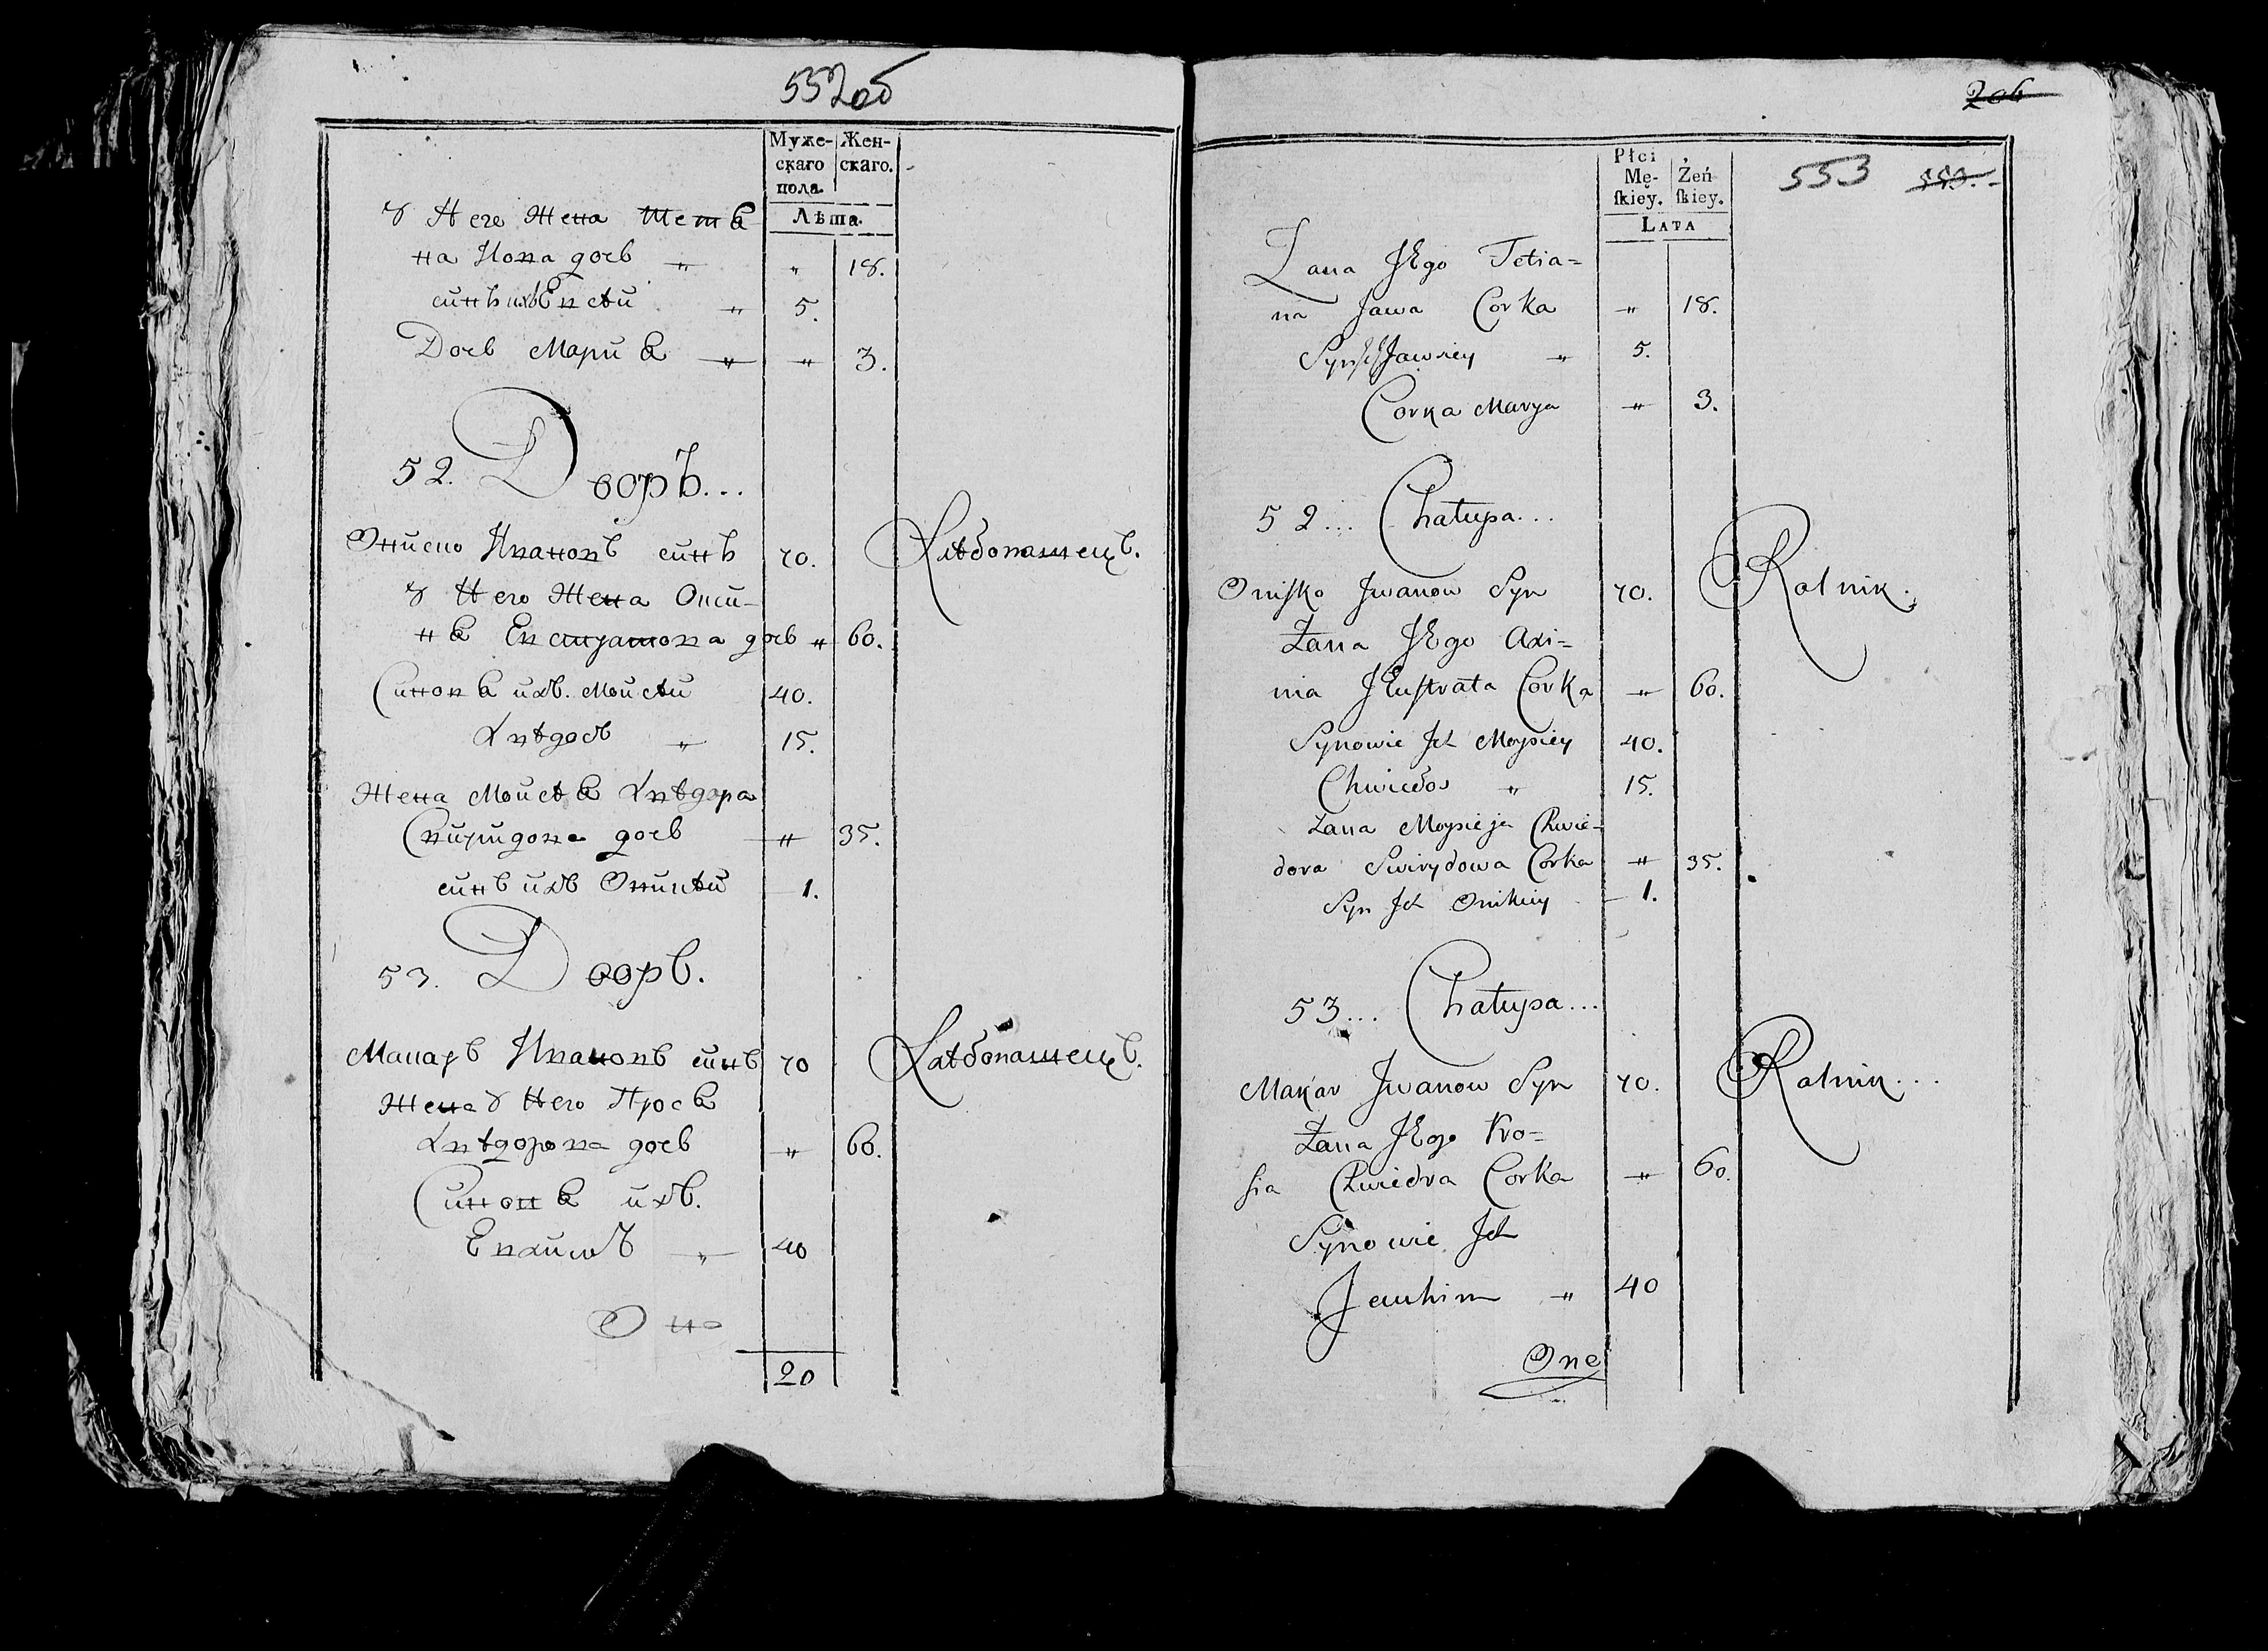 552об
Муже-
скаго
пола.
Жен-
скаго.
Лѣта.
У Него Жена Тетѣ
на Иова дочь " " 18.
синъ ихъ Евсѣй " 5.
Дочь Мариѣ " " 3.
52. Дворъ...
Ониско Ивановъ синъ 70. Хлѣбопашецъ.
У Него Жена Окси-
нѣ Евстратова дочь " 60.
Синовѣ ихъ. Мойсѣй 40.
Хвѣдосъ " 15.
Жена Мойсѣѣ Хвѣдора
Спиридона дочь " 35.
синъ ихъ Оникѣй 1.
53. Дворъ.
Макаръ Ивановъ синъ 70 Хлѣбопашецъ.
Жена У Него Просѣ
Хвѣдорова дочь " 60.
Синовѣ ихъ.
Евхимъ " 40
Она
20
206
553 553.
Płci
Mę-
ſkiey.
Żeń
ſkiey.
LATA
Żana JEgo Tetia=
na Jawa Corka " 18.
Syn Jch Jawsiey " 5.
Corka Marya " 3.
52... Chatupa...
Oniſko Jwanow Syn 70. Rolnik.
Żana JEgo Axi=
nia JEuſtrata Corka " 60.
Synowie Jch Moysiey 40.
Chwiedos " 15.
Żana Moysieja Chwie-
dora Swirydowa Corka " 35.
Syn Jch Onikiey 1.
53... Chatupa...
Makar Jwanow Syn 70. Rolnik...
Żana JEgo Pro=
ſia Chwiedra Corka " 60.
Synowie Jch
Jeuhim " 40
One